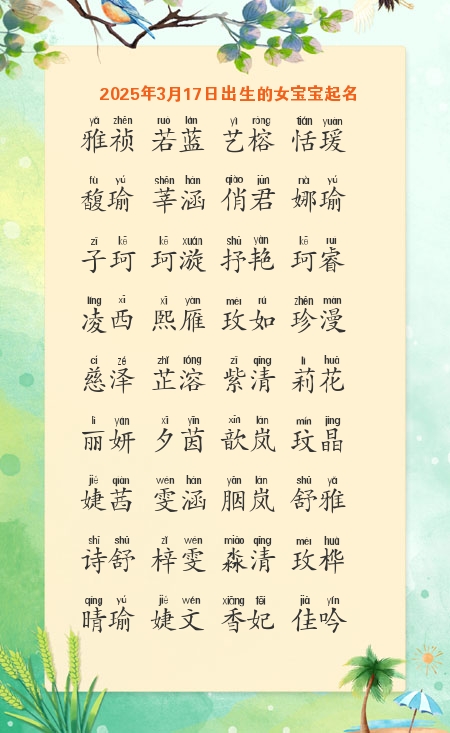 2025年3月17日出生的女宝宝起名
yǎ zhēn ruò lán yì róng tián yuàn
雅祯 若蓝 艺榕 恬瑗
fù yú shēn hán qiào jūn nà yú
馥瑜 莘涵 俏君 娜瑜
zǐ kē kē xuán shū yàn kē ruì
子珂 珂漩 抒艳 珂睿
líng xī xī yàn méi rú zhēn màn
凌西 熙雁 玫如 珍漫
cí zé zhǐ róng zǐ qīng lì huā
慈泽 芷溶 紫清 莉花
lì yán xī yīn xīn lán mín jīng
丽妍 夕茵 歆岚 玟晶
jié qiàn wén hán yān lán shū yǎ
婕茜 雯涵 胭岚 舒雅
shī shū zǐ wén miǎo qīng méi huà
诗舒 梓雯 淼清 玫桦
qíng yú jié wén xiāng fēi jiā yín
晴瑜 婕文 香妃 佳吟